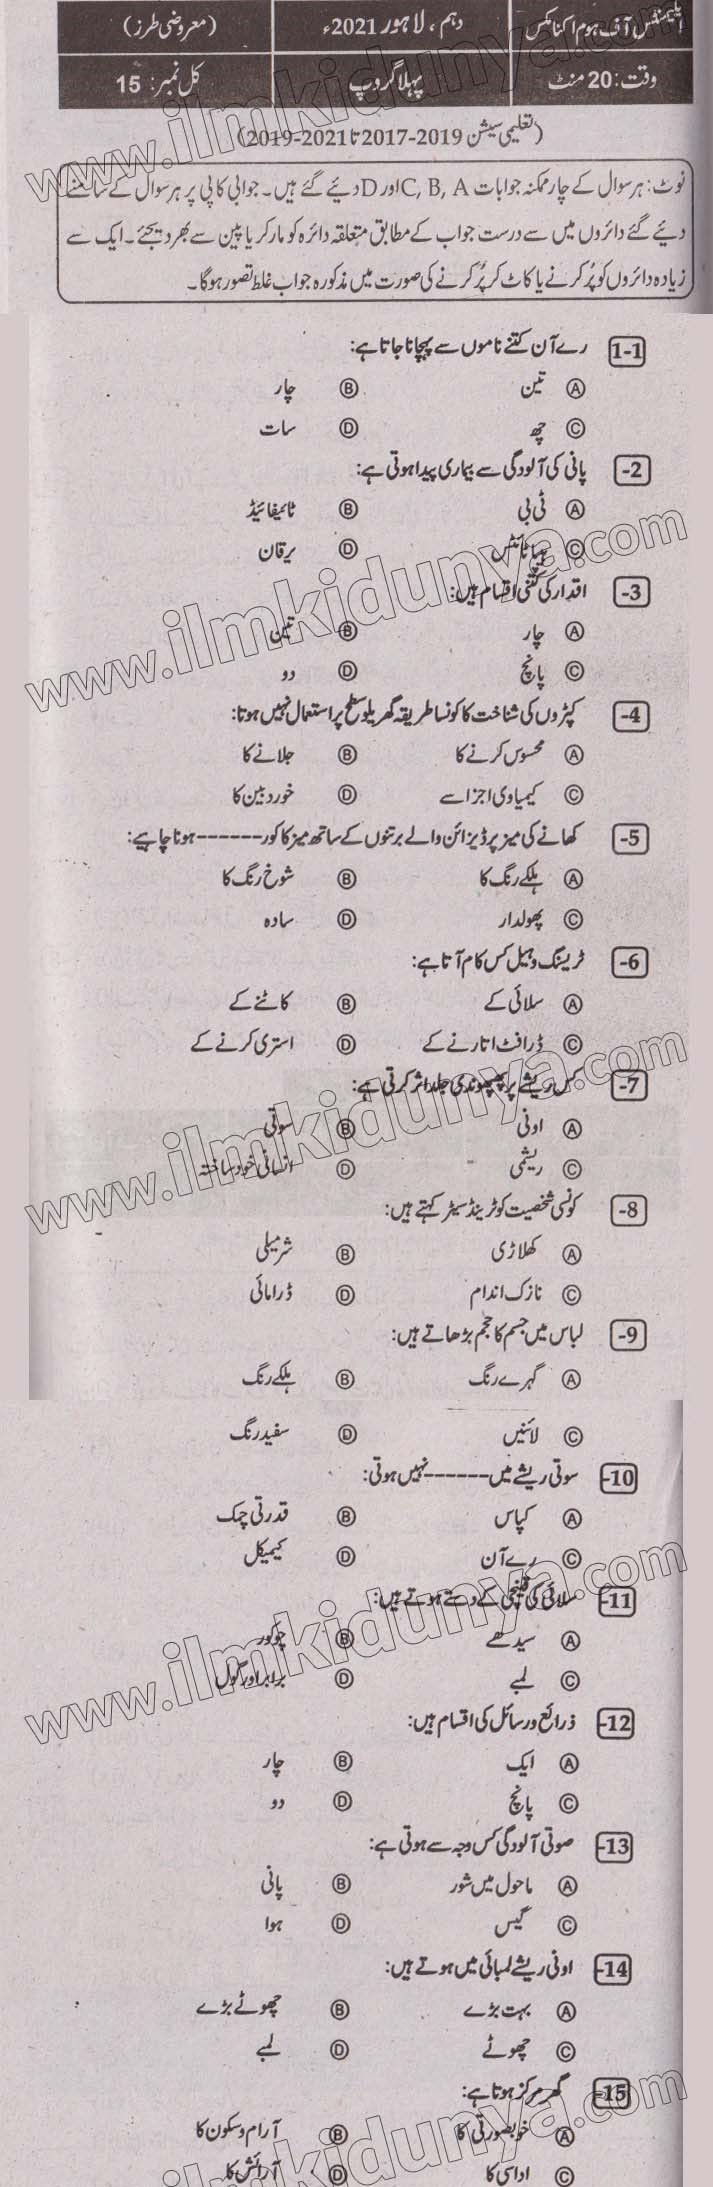 ایلیمنٹس آف ہوم اکنامکس
دہم، لاہور 2021ء
(معروضی طرز)
وقت: 20 منٹ
پہلا گروپ
کل نمبر: 15
(تعلیمی سیشن 2019-2017 تا 2021-2019)
نوٹ: ہر سوال کے چار ممکنہ جوابات C, B, A اور D دیئے گئے ہیں۔ جوابی کاپی پر ہر سوال کے سامنے
دیئے گئے دائروں میں سے درست جواب کے مطابق متعلقہ دائرہ کو مارکر یا پین سے بھر دیجئے۔ ایک سے
زیادہ دائروں کو پُر کرنے یا کاٹ کر پُر کرنے کی صورت میں مذکورہ جواب غلط تصور ہوگا۔
1-1 رے آن کتنے ناموں سے پہچانا جاتا ہے:
A تین B چار
C چھ D سات
2- پانی کی آلودگی سے بیماری پیدا ہوتی ہے:
A ٹی بی B ٹائیفائیڈ
C ہیپاٹائٹس D یرقان
3- اقدار کی کتنی اقسام ہیں:
A چار B تین
C پانچ D دو
4- کپڑوں کی شناخت کا کونسا طریقہ گھریلو سطح پر استعمال نہیں ہوتا:
A محسوس کرنے کا B جلانے کا
C کیمیاوی اجزا سے D خوردبین کا
5- کھانے کی میز پر ڈیزائن والے برتنوں کے ساتھ میز کا کور ------ ہونا چاہیے:
A ہلکے رنگ کا B شوخ رنگ کا
C پھولدار D سادہ
6- ٹریسنگ وہیل کس کام آتا ہے:
A سلائی کے B کاٹنے کے
C ڈرافٹ اتارنے کے D استری کرنے کے
7- کس ریشے پر پھپھوندی جلد اثر کرتی ہے:
A اونی B سوتی
C ریشمی D انسانی خود ساختہ
8- کونسی شخصیت کو ٹرینڈ سیٹر کہتے ہیں:
A کھلاڑی B شرمیلی
C نازک اندام D ڈرامائی
9- لباس میں جسم کا حجم بڑھاتے ہیں:
A گہرے رنگ B ہلکے رنگ
C لائنیں D سفید رنگ
10- سوتی ریشے میں ------ نہیں ہوتی:
A کپاس B قدرتی چمک
C رے آن D کیمیکل
11- سلائی کی قینچی کے دستے ہوتے ہیں:
A سیدھے B چوکور
C لمبے D برابر اور گول
12- ذرائع و رسائل کی اقسام ہیں:
A ایک B چار
C پانچ D دو
13- صوتی آلودگی کس وجہ سے ہوتی ہے:
A ماحول میں شور B پانی
C گیس D ہوا
14- اونی ریشے لمبائی میں ہوتے ہیں:
A بہت بڑے B چھوٹے بڑے
C چھوٹے D لمبے
15- گھر مرکز ہوتا ہے:
A خوبصورتی کا B آرام و سکون کا
C اداسی کا D آرائش کا
www.ilmkidunya.com
www.ilmkidunya.com
www.ilmkidunya.com
www.ilmkidunya.com
www.ilmkidunya.com